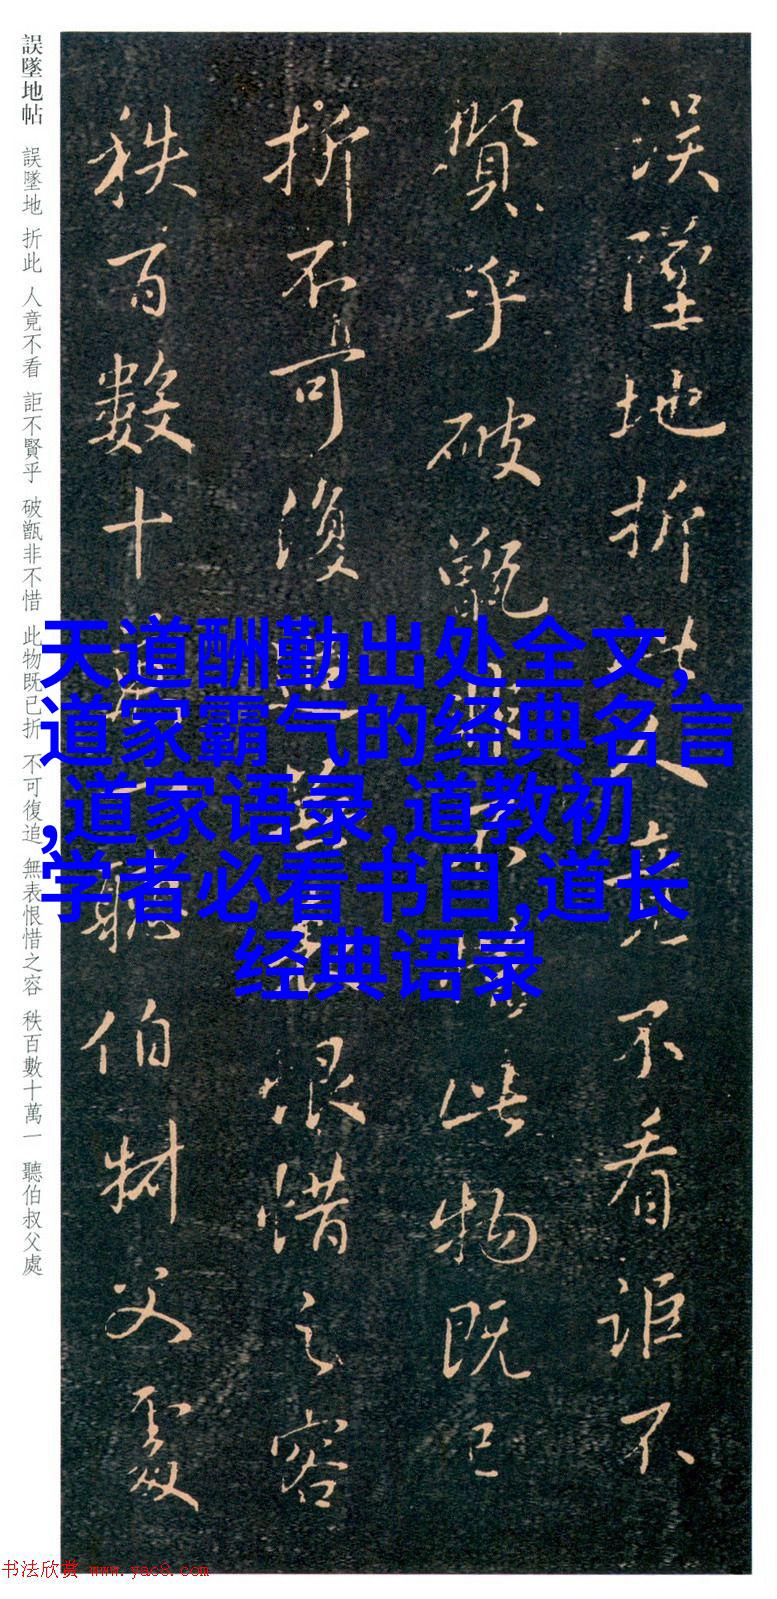 誤墜地折此人竟不看詎不
賢乎破甑非不惜此物既已
折不可復追無表恨惜之容
秩百數十萬一聽伯叔父處
誤墜地帖 誤墜地 折此 人竟不看 詎不賢乎 破甑非不惜 此物既已折 不可復追 無表恨惜之容 秩百數十萬一 聽伯叔父處
天道酬勤出处全文,
道家霸气的经典名言
,道家语录,道教初
学者必看书目,道长
经典语录
书法欣赏 www.yac8.com